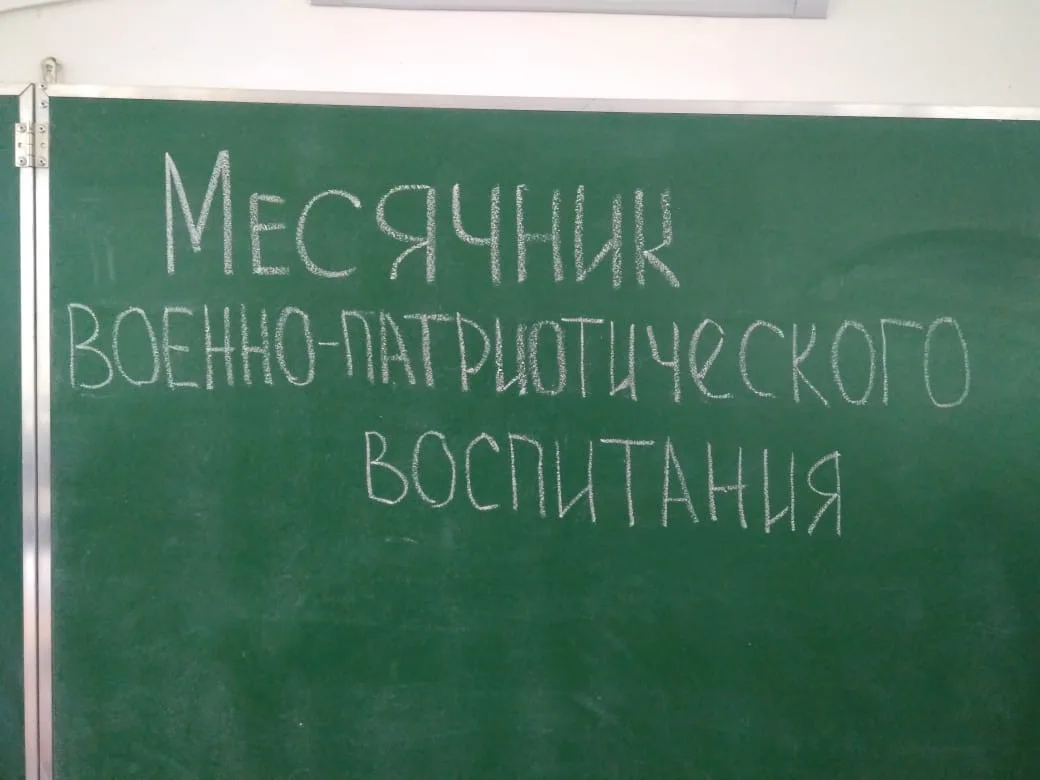 Месячник
военно-патриотического
воспитания